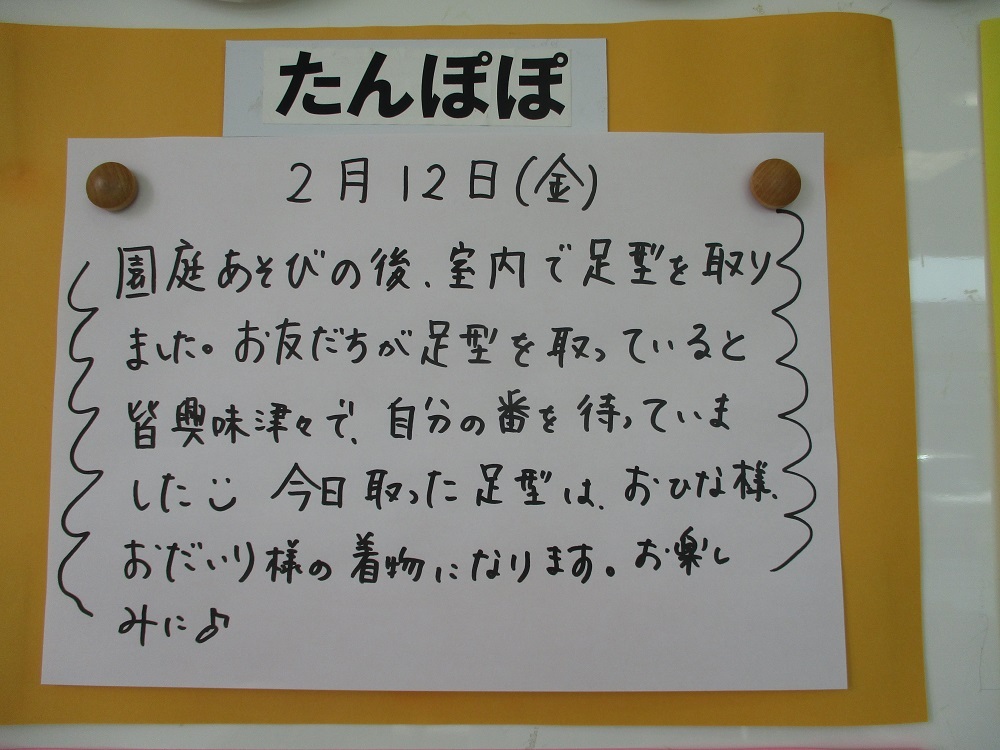 たんぽぽ
2月12日(金)
園庭あそびの後、室内で足型を取り
ました。お友だちが足型を取っていると
皆興味津々で、自分の番を待っていま
した 今日取った足型は、おひな様、
おだいり様の着物になります。お楽し
みに♪